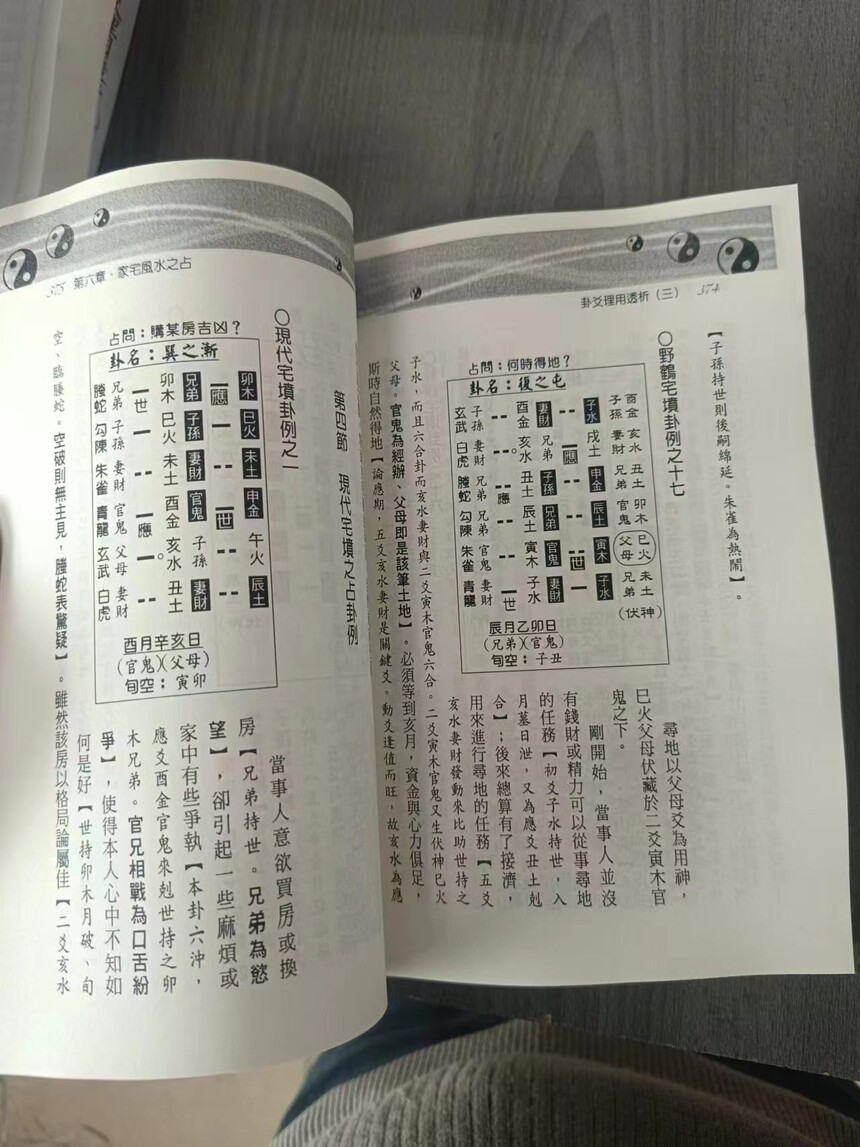 卦爻理用透析（三） 374
【子孫持世則後嗣綿延。朱雀為熱鬧】。
○野鶴宅墳卦例之十七
占問：何時得地？
卦名：復之屯
玄武 子孫 酉金 妻財 子水 子孫 酉金
白虎 妻財 亥水 兄弟 應 戌土 妻財 亥水
螣蛇 兄弟 應 丑土 子孫 申金 兄弟 丑土
勾陳 兄弟 辰土 兄弟 辰土 官鬼 卯木
朱雀 官鬼 寅木 官鬼 世 寅木 父母 巳火
青龍 妻財 世 子水 妻財 子水 兄弟 未土
（伏神）
辰月乙卯日
(兄弟)(官鬼)
旬空：子丑
尋地以父母爻為用神，
巳火父母伏藏於二爻寅木官
鬼之下。
剛開始，當事人並沒
有錢財或精力可以從事尋地
的任務【初爻子水持世，入
月墓日泄，又為應爻丑土剋
合】；後來總算有了接濟，
用來進行尋地的任務【五爻
亥水妻財發動來比助世持之
子水，而且六合卦而亥水妻財與二爻寅木官鬼六合。二爻寅木官鬼又生伏神巳火
父母。官鬼為經辦、父母即是該筆土地】。必須等到亥月，資金與心力俱足，
斯時自然得地【論應期，五爻亥水妻財是關鍵爻。動爻逢值而旺，故亥水為應
375 第六章．家宅風水之占
第四節 現代宅墳之占卦例
○現代宅墳卦例之一
占問：購某房吉凶？
卦名：巽之漸
螣蛇 兄弟 世 卯木 兄弟 應 卯木
勾陳 子孫 巳火 子孫 巳火
朱雀 妻財 未土 妻財 未土
青龍 官鬼 應 酉金 官鬼 世 申金
玄武 父母 亥水 子孫 午火
白虎 妻財 丑土 妻財 辰土
酉月辛亥日
(官鬼)(父母)
旬空：寅卯
當事人意欲買房或換
房【兄弟持世。兄弟為慾
望】，卻引起一些麻煩或
家中有些爭執【本卦六沖，
應爻酉金官鬼來剋世持之卯
木兄弟。官兄相戰為口舌紛
爭】，使得本人心中不知如
何是好【世持卯木月破、旬
空、臨螣蛇。空破則無主見，螣蛇表驚疑】。雖然該房以格局論屬佳【二爻亥水